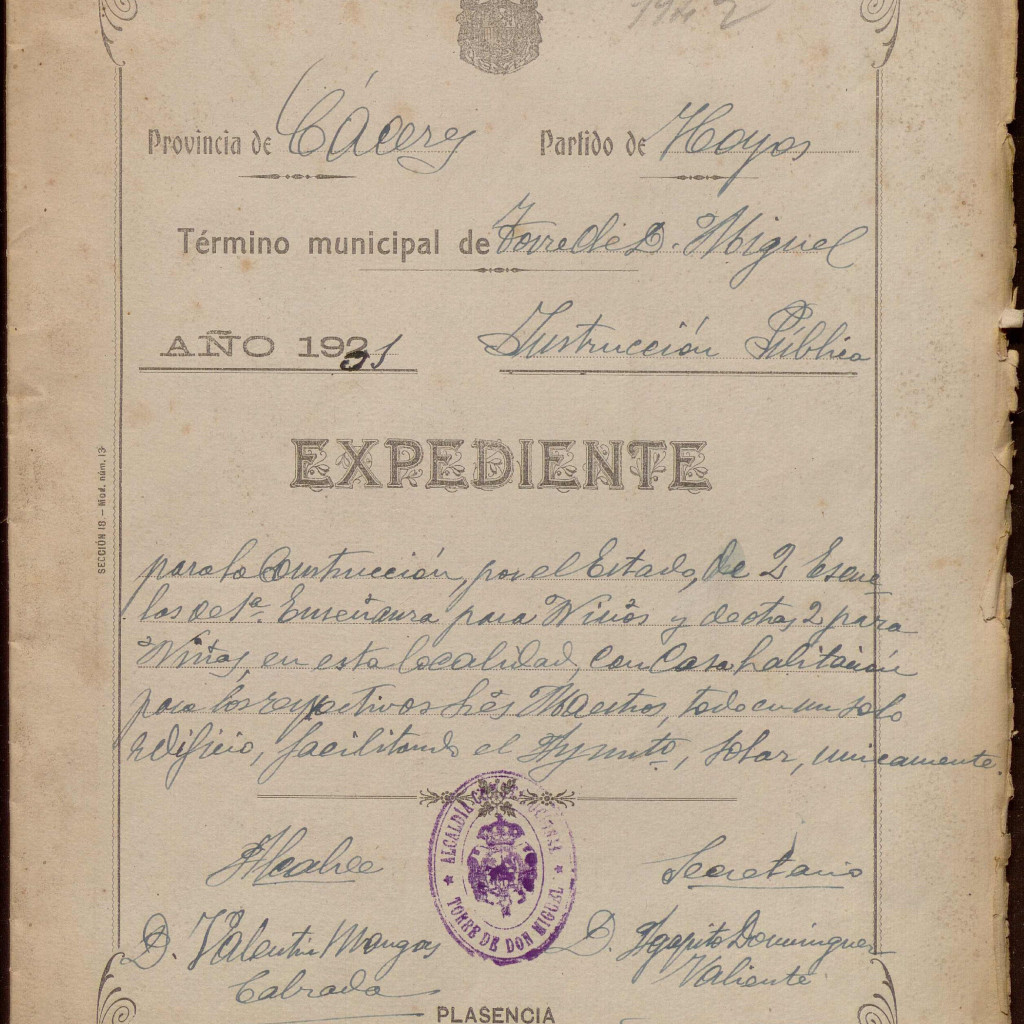 1942
Provincia de Cáceres Partido de Hoyos
Término municipal de Torre de D. Miguel
AÑO 1921 Instrucción Pública
EXPEDIENTE
SECCIÓN 18. – Mod. núm. 13
para la Construcción, por el Estado, de 2 Escue-
las de 1ª Enseñanza para Niños y de otras 2 para
Niñas, en esta localidad, con Casa habitación
para los respectivos Maestros, todo en un solo
edificio, facilitando el Ayunto, solar, unicamente.
ALCALDÍA CONSTITUCIONAL
TORRE DE DON MIGUEL
Alcalde Secretario
D. Valentin Mangas D. Agapito Dominguez
Cabrada Valiente
PLASENCIA